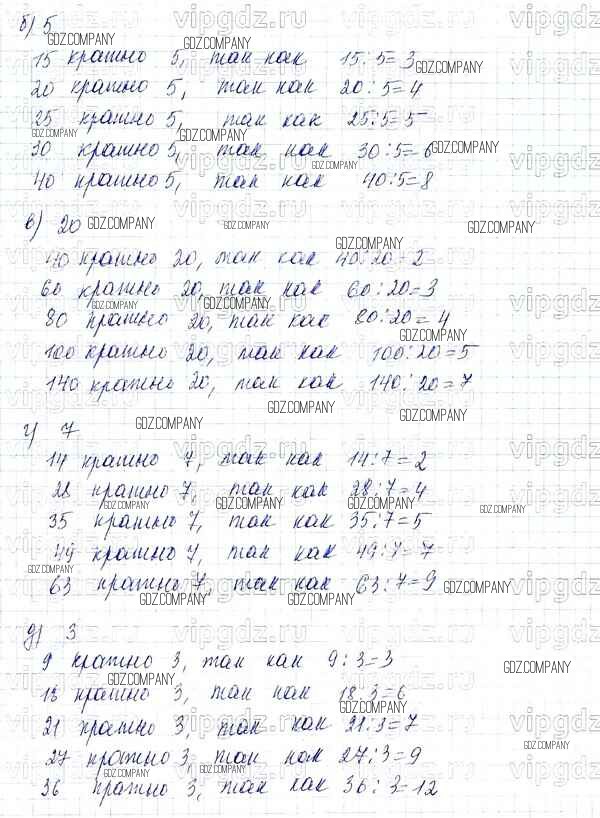 б) 5
15 кратно 5, так как 15:5=3
20 кратно 5, так как 20:5=4
25 кратно 5, так как 25:5=5
30 кратно 5, так как 30:5=6
40 кратно 5, так как 40:5=8
в) 20
40 кратно 20, так как 40:20=2
60 кратно 20, так как 60:20=3
80 кратно 20, так как 80:20=4
100 кратно 20, так как 100:20=5
140 кратно 20, так как 140:20=7
г) 7
14 кратно 7, так как 14:7=2
28 кратно 7, так как 28:7=4
35 кратно 7, так как 35:7=5
49 кратно 7, так как 49:7=7
63 кратно 7, так как 63:7=9
д) 3
9 кратно 3, так как 9:3=3
18 кратно 3, так как 18:3=6
21 кратно 3, так как 21:3=7
27 кратно 3, так как 27:3=9
36 кратно 3, так как 36:3=12
GDZ.COMPANY
vipgdz.ru